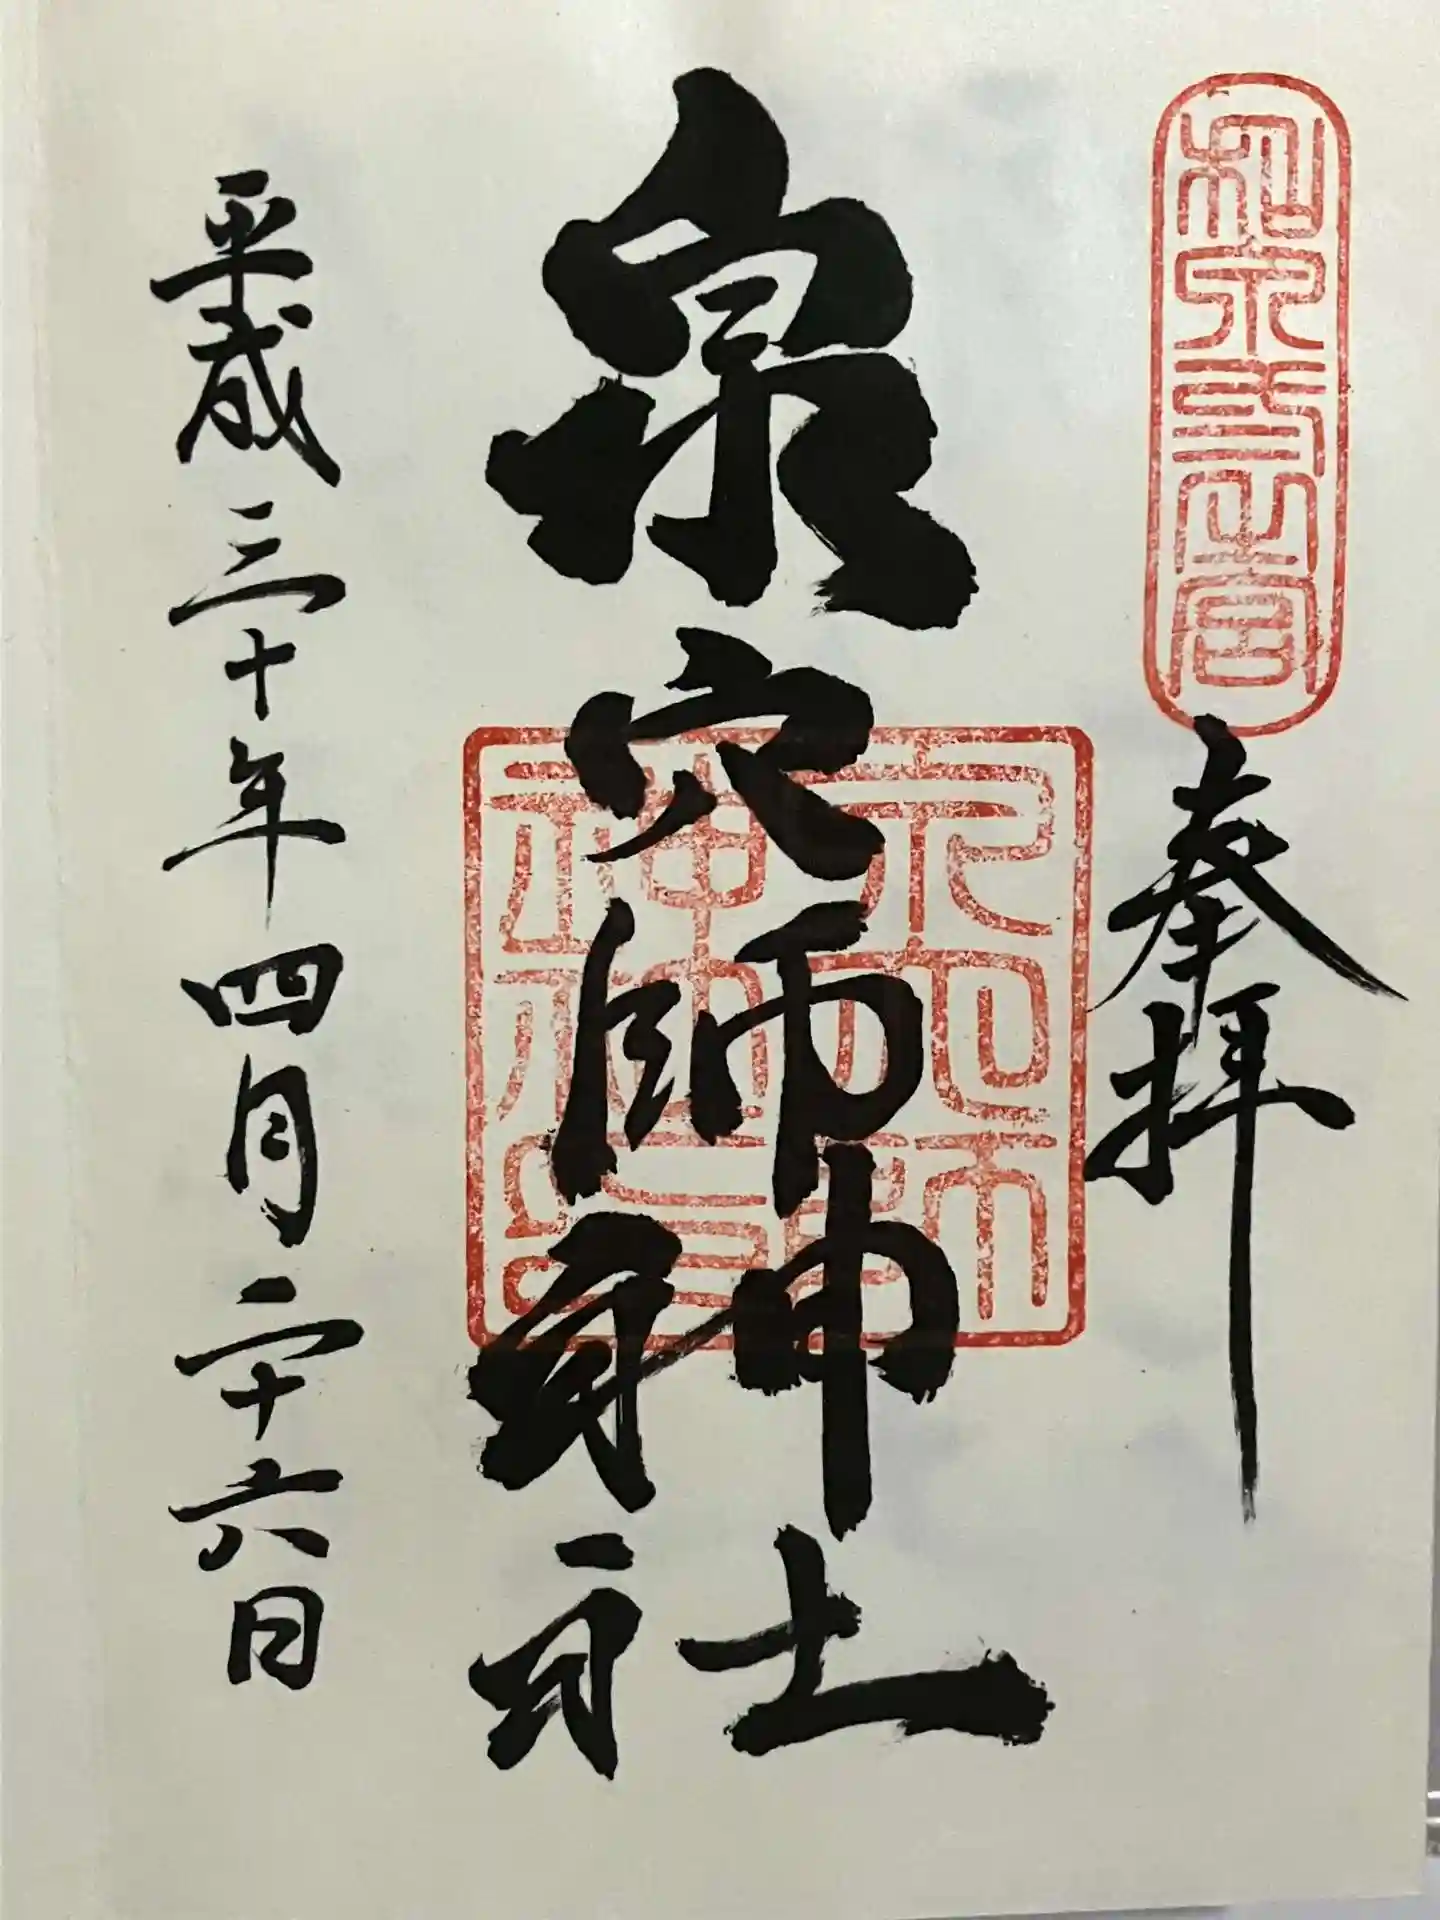 和泉弐之宮
奉拝
泉穴師神社
泉穴師
神社印
平成三十年四月二十六日